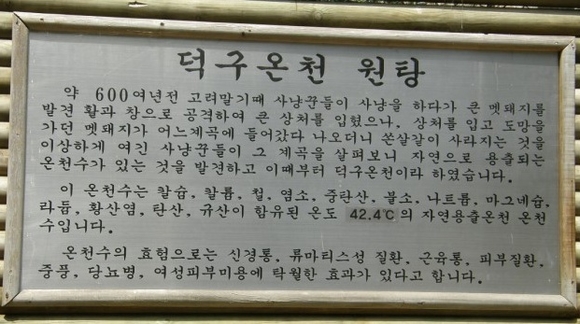 덕구온천 원탕
약 600여년전 고려말기때 사냥꾼들이 사냥을 하다가 큰 멧돼지를
발견 활과 창으로 공격하여 큰 상처를 입혔으나, 상처를 입고 도망을
가던 멧돼지가 어느계곡에 들어갔다 나오더니 쏜살같이 사라지는 것을
이상하게 여긴 사냥꾼들이 그 계곡을 살펴보니 자연으로 용출되는
온천수가 있는 것을 발견하고 이때부터 덕구온천이라 하였습니다.
이 온천수는 칼슘, 칼륨, 철, 염소, 중탄산, 불소, 나트륨, 마그네슘,
라듐, 황산염, 탄산, 규산이 함유된 온도 42.4℃의 자연용출온천 온천
수입니다.
온천수의 효험으로는 신경통, 류마티스성 질환, 근육통, 피부질환,
중풍, 당뇨병, 여성피부미용에 탁월한 효과가 있다고 합니다.